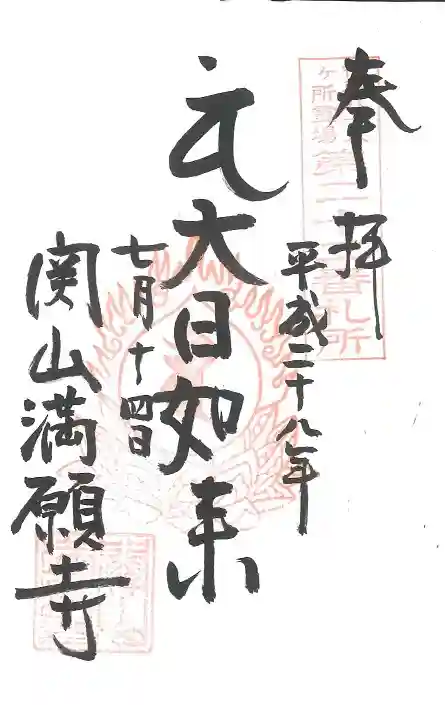 奉拝
ヶ所霊場第二十番札所
平成二十八年
大日如来
七月十四日
関山満願寺